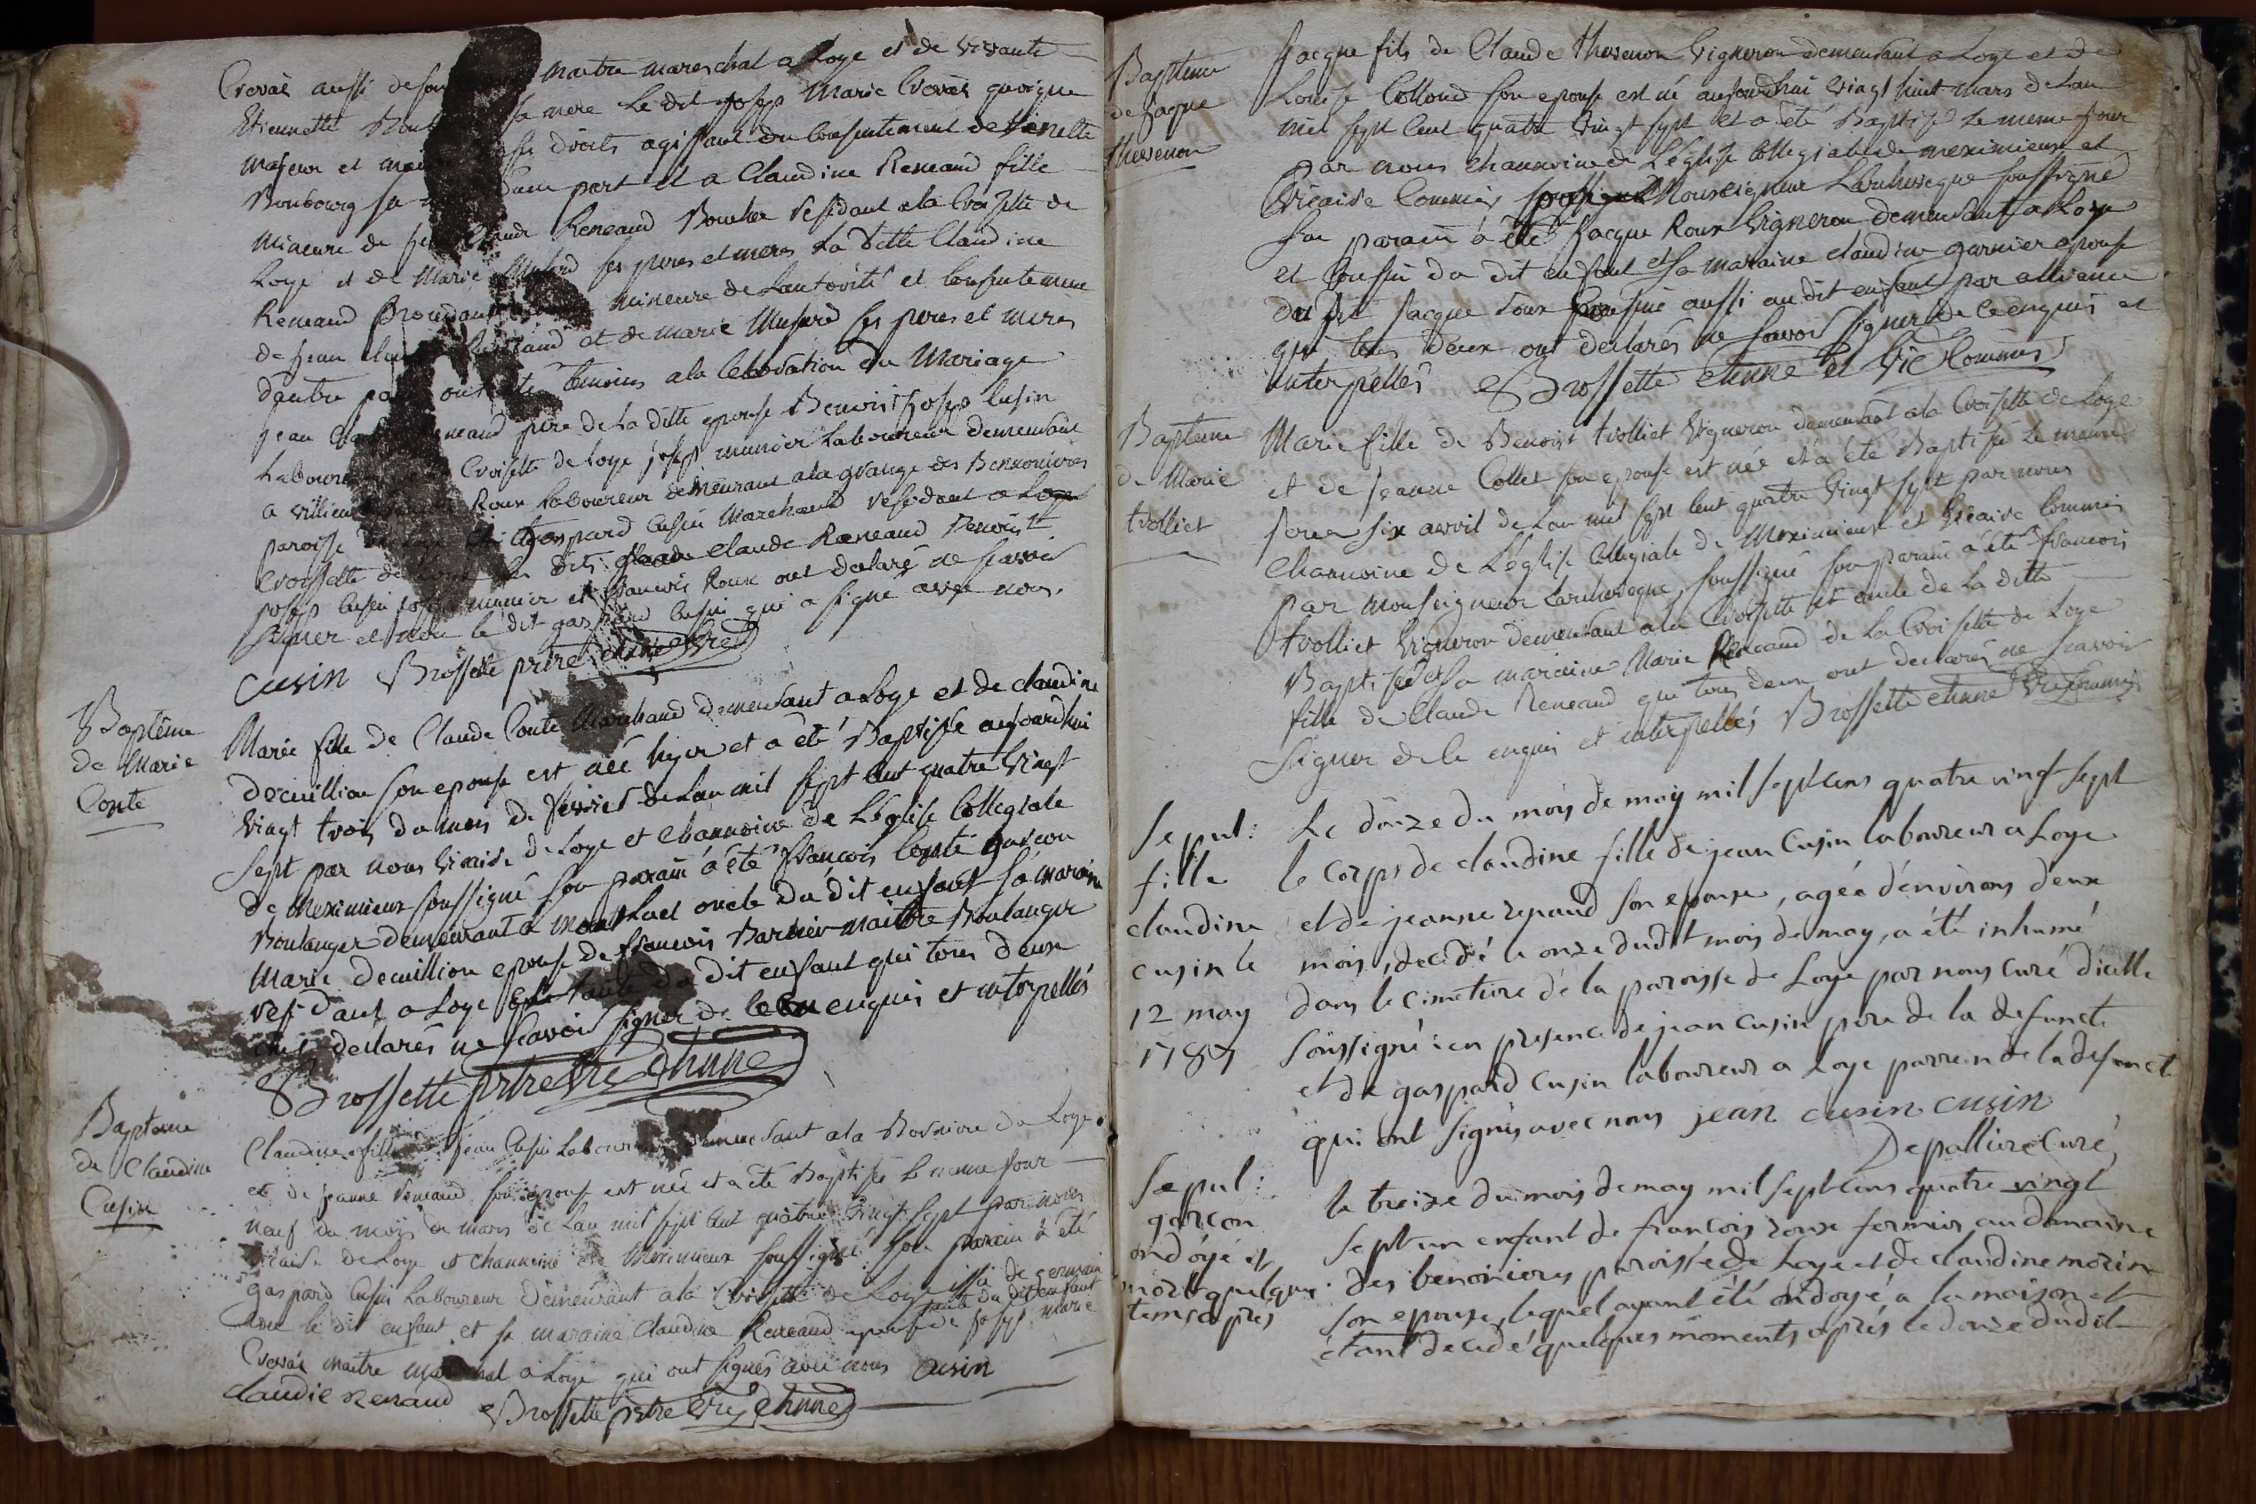 Crovat aussi de maitre mareschal a Loye et de vivante
Etiennette sa mere Le dit joseps Marie Crovat quoique
majeur et ses droits agissant du Consentement de
Bonbourg sa d'une part et a Claudine Reneaud fille
mineure de Claude Reneaud Boucher residant a la Croisette de
Loye et de Marie Musard ses peres et meres La ditte Claudine
Reneaud procedant mineure de Lautorité et Consentement
de jean et de marie Musard ses peres et meres
d'autre part ont été temoins a la Celebration du Mariage
jean pere de La ditte epouse Benoist joseps Cusin
Laboureur Croisette de Loye joseps munier Laboureur demeurant
a villieu Roux Laboureur demeurant a la grange des Bennonieres
paroisse de Loye gaspard Cusin Marchand residant a Loye
Croissette les dits Claude Reneaud Benoist
joseps Cusin joseps munier et francois Roux ont declaré ne scavoir
signer et non le dit gaspard Cusin qui a signé avec nous.
cusin Brossette prtre
Baptême
de Marie
Conte
Marie fille de Claude Conte Marchand demeurant a Loye et de claudine
decuillion son epouse est née hyer et a été Baptisée aujourdhui
vingt trois du mois de fevrier de Lan mil sept cent quatre vingt
sept par nous vicaire de Loye et channoine de L'église Collegiale
de Meximieux soussigné son parain a été francois Conte garcon
Boulanger demeurant a montluel oncle du dit enfant sa maraine
Marie decuillion epouse de francois Barbier maitre Boulanger
residant a Loye tante du dit enfant qui tous deux
ont declarés ne scavoir signer de ce enquis et interpellés
Brossette prtre vic chnne
Bapteme
de Claudine
Cusin
Claudine fille de jean Cusin Laboureur demeurant a la de Loye
et de jeanne Reneaud son epouse est née et a été Baptisée le meme jour
neuf du mois de mars de Lan mil sept cent quatre vingt sept par nous
vicaire de Loye et channoine de Meximieux soussigné son parain a été
gaspard Cusin Laboureur demeurant a la Croisette de Loye issu de germain
avec le dit enfant et sa maraine Claudine Reneaud epouse de joseps marie
tante du dit enfant
Crovat maitre mareschal a Loye qui ont signés avec nous cusin
claudie renaud Brossette prtre vic chnne
Bapteme
de jacque
thevenon
jacque fils de Claude thevenon vigneron demeurant a Loye et de
Louise Collond son epouse est né aujourdhui vingt huit mars de Lan
mil sept cent quatre vingt sept et a été Baptisé le meme jour
par nous channoine de L'église Collegiale de meximieux et
vicaire Commis Monseigneur Larchevêque soussigné
son parain a été jacque Roux vigneron demeurant a Loye
et Cousin du dit enfant et sa maraine claudine garnier epouse
du dit jacque Roux Cousine aussi au dit enfant par alliance
qui tous deux ont declarés ne scavoir signer de ce enquis et
interpellés Brossette chnne et vic Commis
Bapteme
de Marie
trolliet
Marie fille de Benoist trolliet vigneron demeurant a la Croisette de Loye
et de jeanne Collet son epouse est née et a été Baptisée le meme
jour six avril de Lan mil sept cent quatre vingt sept par nous
channoine de L'église Collegiale de Meximieux et vicaire Commis
par monseigneur Larcheveque soussigné son parain a été francois
trolliet vigneron demeurant a la Croisette et oncle de la ditte
Baptisée et sa maraine Marie Reneaud de la Croisette de Loye
fille de Claude Reneaud qui tous deux ont declarés ne scavoir
signer de ce enquis et interpellés Brossette chnne vic commis
sepul:
fille
claudine
cusin le
12 may
1787
Le douze du mois de may mil sept cens quatre vingt sept
le corps de claudine fille de jean cusin laboureur a Loye
et de jeanne renaud son epouse, agée d'environs deux
mois, decedé le onze dudit mois de may, a été inhumé
dans le cimetiere de la paroisse de Loye par nous curé d'icelle
soussigné: en presence de jean cusin pere de la defuncte
et de gaspard cusin laboureur a loye parrein de la defuncte
qui ont signés avec nous jean cusin cusin
Depalliere Curé
sepul:
garcon
ondoyé et
mort quelque
tems après
le treize du mois de may mil sept cens quatre vingt
sept un enfant de francois roux fermier au domaine
des benonieres paroisse de Loye et de claudine morin
son epouse, lequel ayant été ondoyé a la maison et
étant decedé quelques moments après le douze dudit